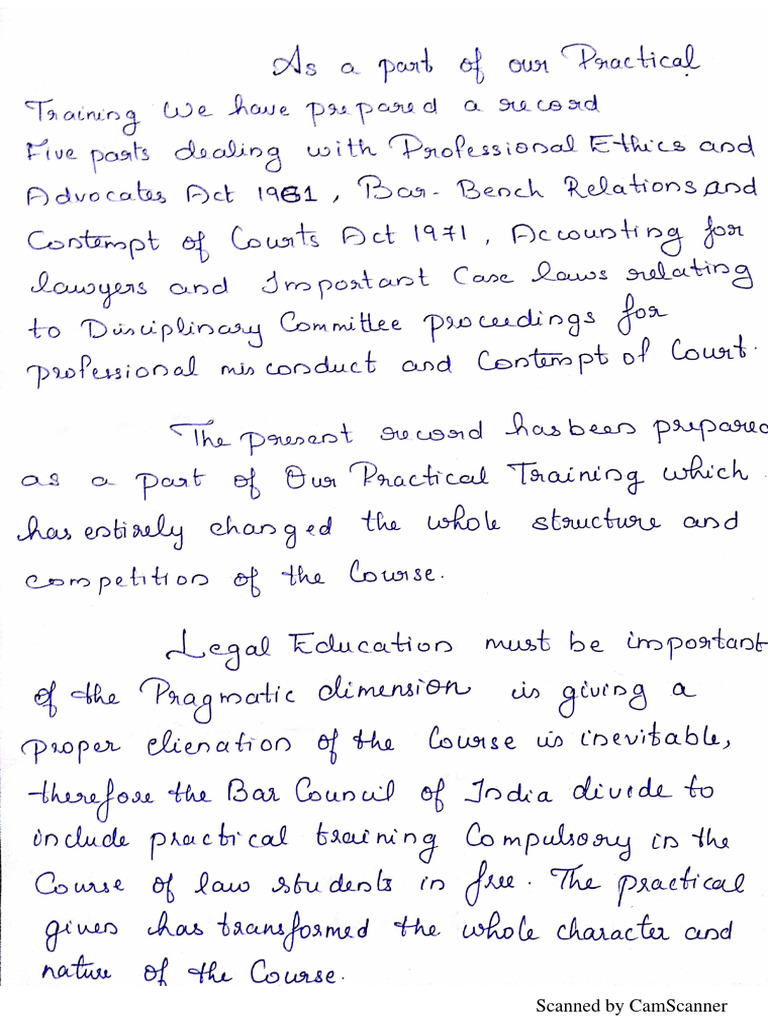 As a part of our Practical
Training We have prepared a record
Five parts dealing with Professional Ethics and
Advocates Act 1961, Bar-Bench Relations and
Contempt of Courts Act 1971, Accounting for
lawyers and Important Case laws relating
to Disciplinary Committee proceedings for
professional misconduct and Contempt of Court.
The present record has been prepared
as a part of Our Practical Training which
has entirely changed the whole structure and
competition of the Course.
Legal Education must be important
of the Pragmatic dimension is giving a
proper elienation of the Course is inevitable,
therefore the Bar Council of India divide to
include practical training Compulsory in the
Course of law students in free. The practical
given has transformed the whole character and
nature of the Course.
Scanned by CamScanner